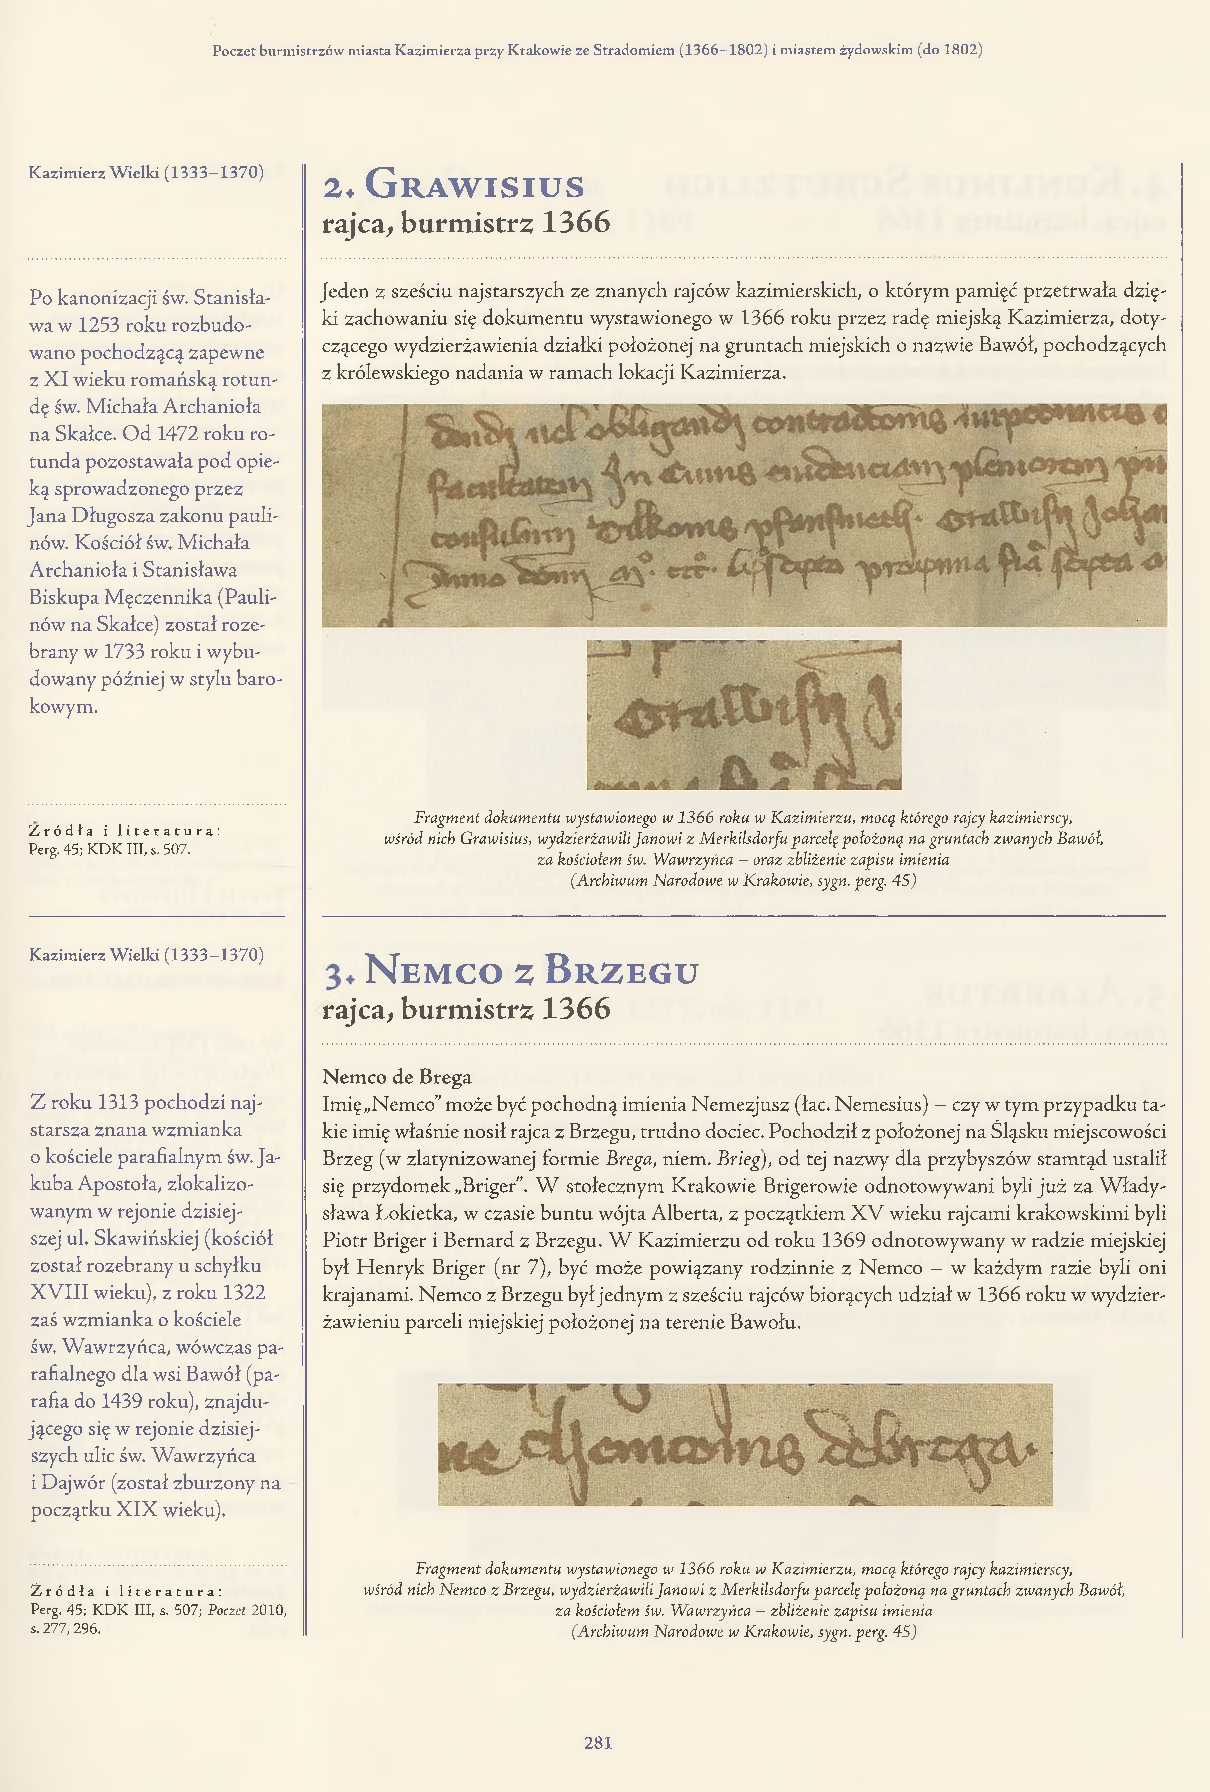 Poczet burmistrzów miasta Kazimierza przy Krakowie ze Stradomiem (1366–1802) i miastem żydowskim (do 1802)
Kazimierz Wielki (1333–1370)
Po kanonizacji św. Stanisła-
wa w 1253 roku rozbudo-
wano pochodzącą zapewne
z XI wieku romańską rotun-
dę św. Michała Archanioła
na Skałce. Od 1472 roku ro-
tunda pozostawała pod opie-
ką sprowadzonego przez
Jana Długosza zakonu pauli-
nów. Kościół św. Michała
Archanioła i Stanisława
Biskupa Męczennika (Pauli-
nów na Skałce) został roze-
brany w 1733 roku i wybu-
dowany później w stylu baro-
kowym.
Źródła i literatura:
Perg. 45; KDK III, s. 507.
2. Grawisius
rajca, burmistrz 1366
Jeden z sześciu najstarszych ze znanych rajców kazimierskich, o którym pamięć przetrwała dzię-
ki zachowaniu się dokumentu wystawionego w 1366 roku przez radę miejską Kazimierza, doty-
czącego wydzierżawienia działki położonej na gruntach miejskich o nazwie Bawół, pochodzących
z królewskiego nadania w ramach lokacji Kazimierza.
Fragment dokumentu wystawionego w 1366 roku w Kazimierzu, mocą którego rajcy kazimierscy,
wśród nich Grawisius, wydzierżawili Janowi z Merkilsdorfu parcelę położoną na gruntach zwanych Bawół,
za kościołem św. Wawrzyńca – oraz zbliżenie zapisu imienia
(Archiwum Narodowe w Krakowie, sygn. perg. 45)
Kazimierz Wielki (1333–1370)
Z roku 1313 pochodzi naj-
starsza znana wzmianka
o kościele parafialnym św. Ja-
kuba Apostoła, zlokalizo-
wanym w rejonie dzisiej-
szej ul. Skawińskiej (kościół
został rozebrany u schyłku
XVIII wieku), z roku 1322
zaś wzmianka o kościele
św. Wawrzyńca, wówczas pa-
rafialnego dla wsi Bawół (pa-
rafia do 1439 roku), znajdu-
jącego się w rejonie dzisiej-
szych ulic św. Wawrzyńca
i Dajwór (został zburzony na
początku XIX wieku).
Źródła i literatura:
Perg. 45; KDK III, s. 507; Poczet 2010,
s. 277, 296.
3. Nemco z Brzegu
rajca, burmistrz 1366
Nemco de Brega
Imię „Nemco” może być pochodną imienia Nemezjusz (łac. Nemesius) – czy w tym przypadku ta-
kie imię właśnie nosił rajca z Brzegu, trudno dociec. Pochodził z położonej na Śląsku miejscowości
Brzeg (w zlatynizowanej formie Brega, niem. Brieg), od tej nazwy dla przybyszów stamtąd ustalił
się przydomek „Briger”. W stołecznym Krakowie Brigerowie odnotowywani byli już za Włady-
sława Łokietka, w czasie buntu wójta Alberta, z początkiem XV wieku rajcami krakowskimi byli
Piotr Briger i Bernard z Brzegu. W Kazimierzu od roku 1369 odnotowywany w radzie miejskiej
był Henryk Briger (nr 7), być może powiązany rodzinnie z Nemco – w każdym razie byli oni
krajanami. Nemco z Brzegu był jednym z sześciu rajców biorących udział w 1366 roku w wydzier-
żawieniu parceli miejskiej położonej na terenie Bawołu.
Fragment dokumentu wystawionego w 1366 roku w Kazimierzu, mocą którego rajcy kazimierscy,
wśród nich Nemco z Brzegu, wydzierżawili Janowi z Merkilsdorfu parcelę położoną na gruntach zwanych Bawół,
za kościołem św. Wawrzyńca – zbliżenie zapisu imienia
(Archiwum Narodowe w Krakowie, sygn. perg. 45)
281